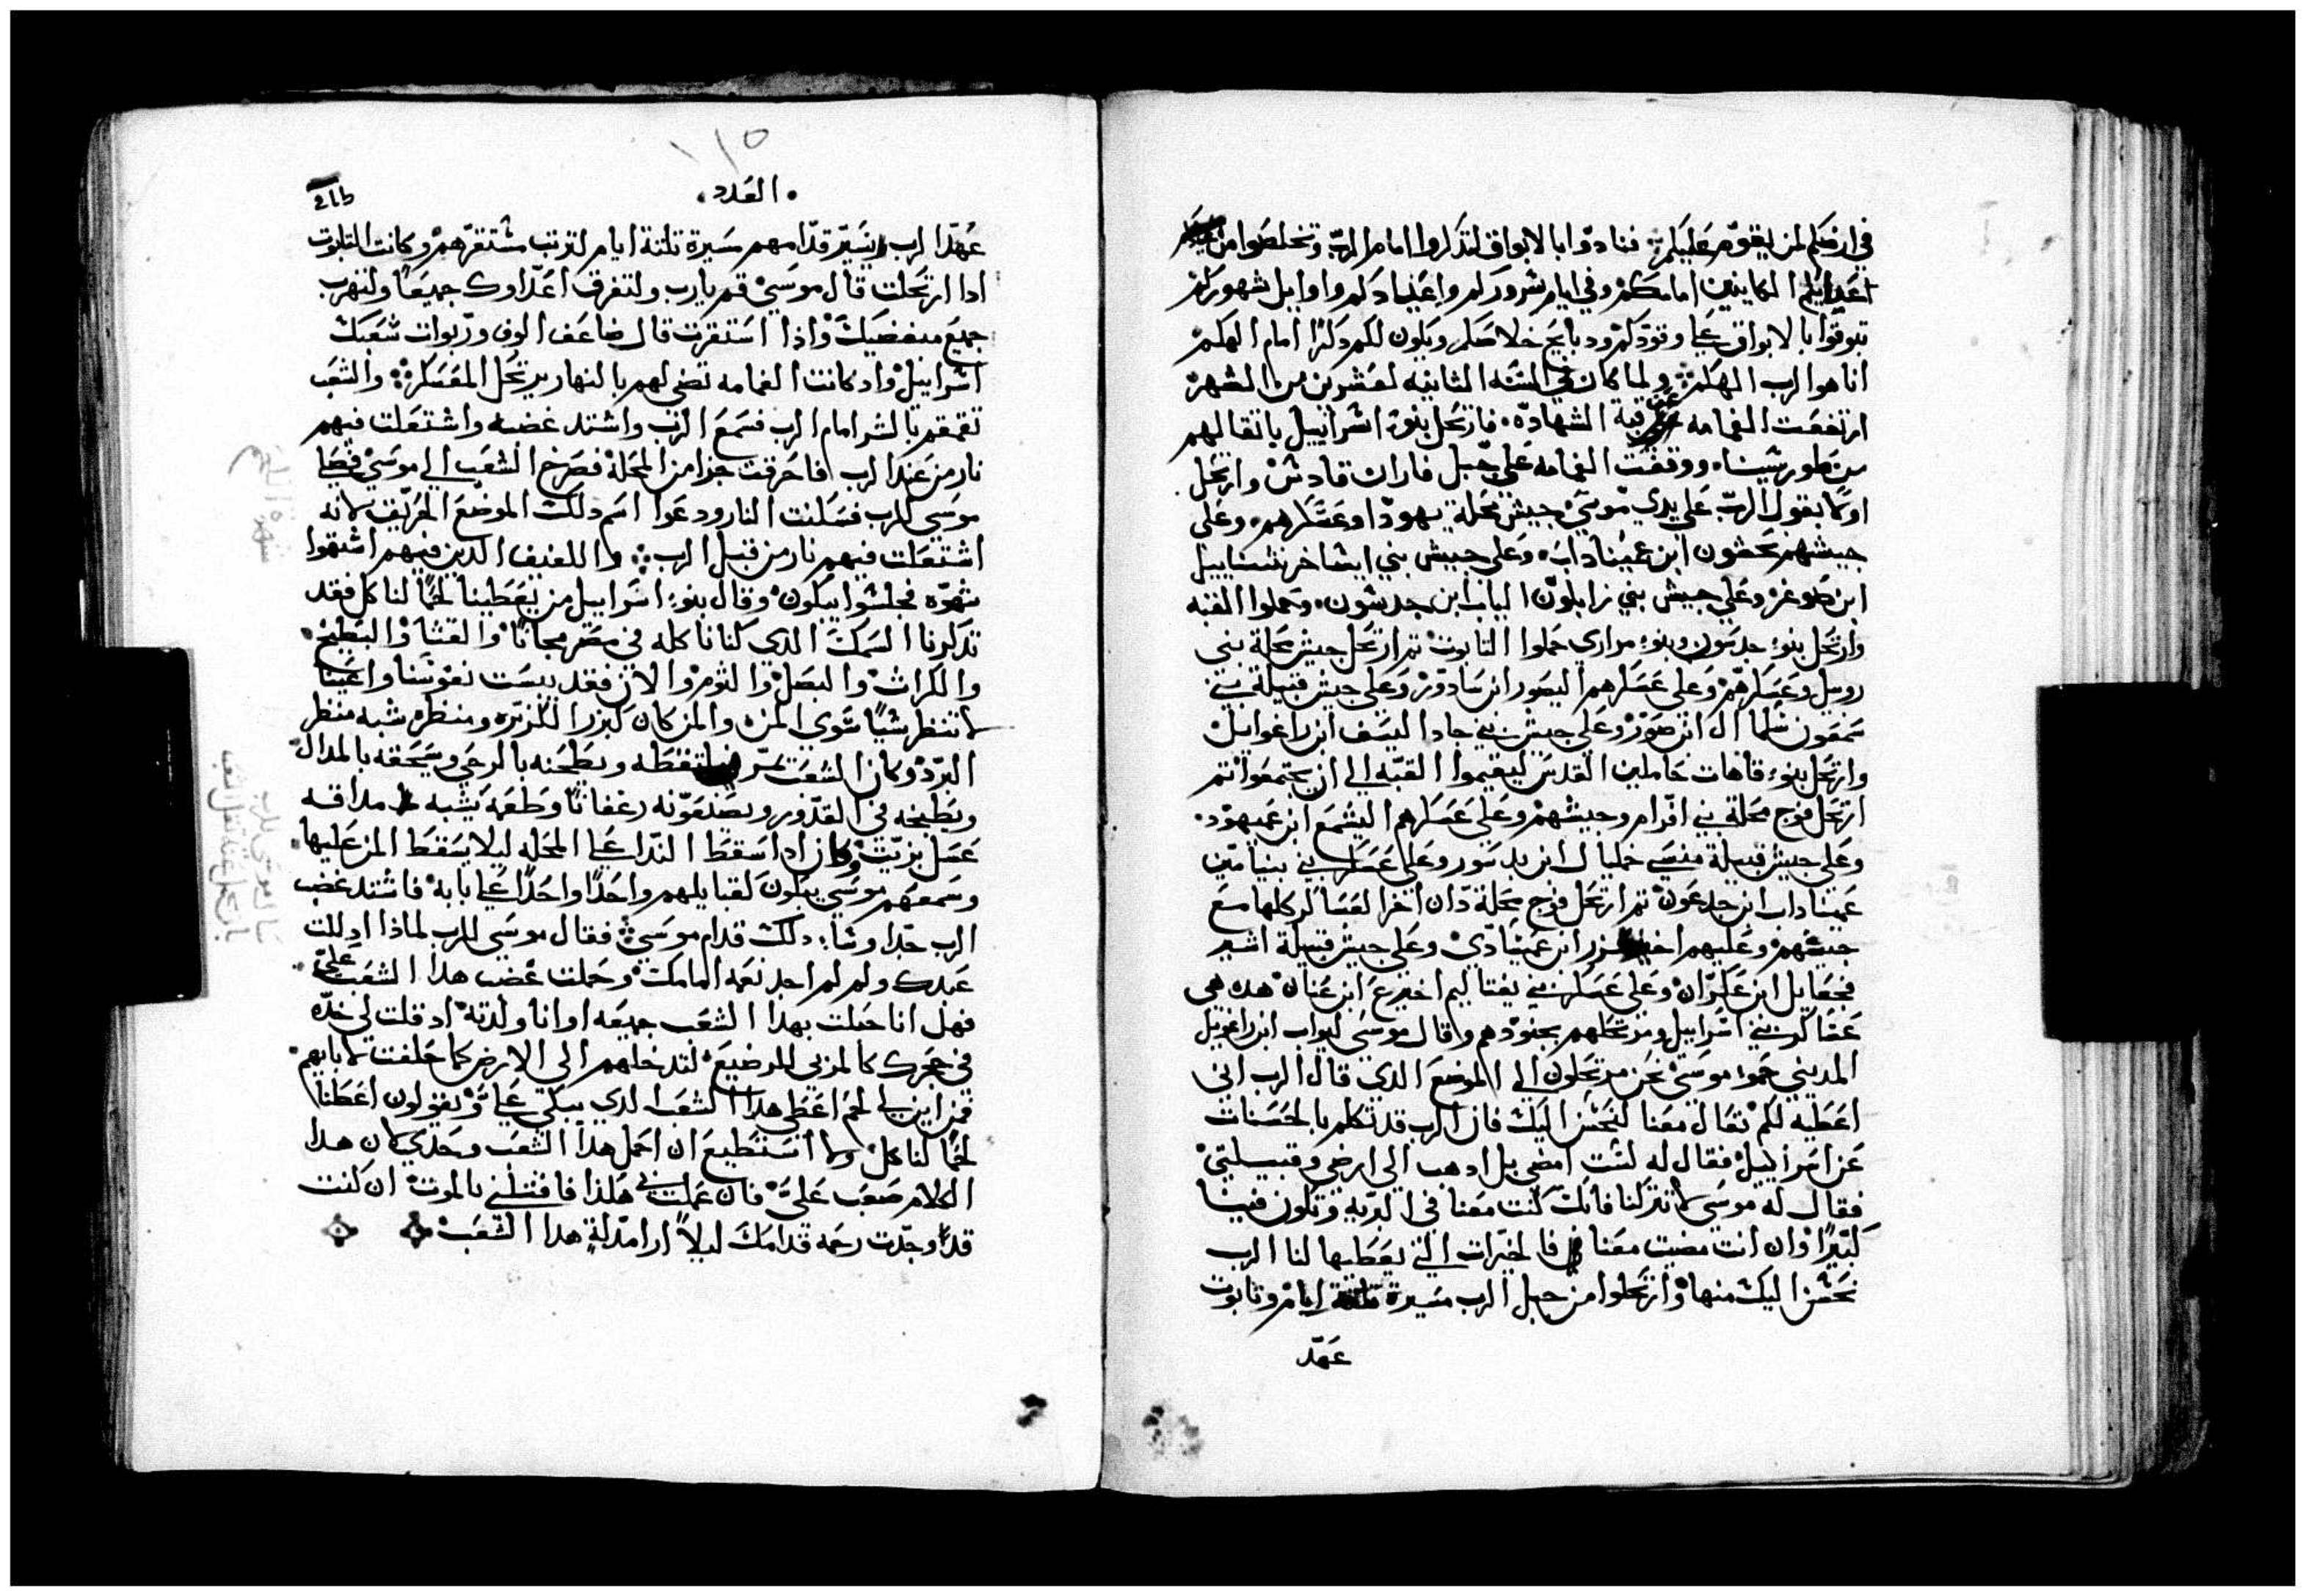 في ارضكم لمن يقوم عليكم فنادوا بالابواق لتدكروا امام الرب وتخلصوا من
اعدايكم الكاينين امامكم وفي ايام سروركم واعيادكم واوايل شهوركم
تبوقوا بالابواق علي وقودكم ودبايح خلاصكم ويكون لكم دكرا امام الهكم
انا هو الرب الهكم ولما كان في السنه الثانيه لعشرين من الشهر
ارتفعت الغمامه عن قبة الشهادة فارتحل بنوا اسراييل باتقالهم
من طور سينا ووقفت الغمامه علي جبل فاران قادش وارتحل
اولا بقول الرب علي يدي موسي جيش محلة يهودا وعسكرهم وعلي
جيشهم نحشون ابن عميناداب وعلي جيش بني ايشاخر نتناييل
ابن صوغر وعلي جيش بني زابلون الياب ابن حدشون وحملوا القبه
وارتحل بنو جدسون وبنو مراري حملوا التابوت تم ارتحل جيش محلة بني
روبيل وعسكرهم وعلي عسكرهم اليصور ابن سادور وعلي جيش قبيلة بني
سمعون شلما ال ابن صور وعلي جيش بني جاد اليسف ابن راغواييل
وارتحل بنو قاهات حاملين القدس ليقيموا القبه الي ان يجتمعوا تم
ارتحل فوج محلة بني افرام وجيشهم وعلي عسكرهم اليشمع ابن عميهود
وعلي جيش قبيلة منسي خمليال ابن بدسور وعلي عسكر بني بنيامين
عميناداب ابن جدعون تم ارتحل فوج محلة دان اخر العساكر كلها مع
جيشهم وعليهم ابن عميشادي وعلي جيش قبيلة اشير
فجعاييل ابن عكران وعلي عسكر بني يفتاليم اخيرع ابن عنان هده هي
عساكر بني اسراييل ومرتحلهم بجنودهم وقال موسي ليواب ابن راغوييل
المديني حمو موسي نحن مرتحلون الي الموضع الدي قال الرب اني
اعطيه لكم تعال معنا لنحسن اليك فان الرب قد تكلم بالحسنات
عن اسراييل فقال له لست امضي بل ادهب الي ارضي وقبيلتي
فقال له موسي لا تتركنا فانك كنت معنا في البريه وتكون فينا
كبيرا وان انت مضيت معنا فالخيرات التي يعطيها لنا الرب
نحسن اليك منها وارتحلوا من جبل الرب مسيرة تلتة ايام وتابوت
عهد
١١٥
العدد
عهد الرب يسير قدامهم مسيرة تلتة ايام لترتب مستقرهم وكانت التابوت
ادا ارتحلت قال موسي قم يا رب ولتفرق اعداوك جميعا ولتهرب
جميع مبغضيك وادا استقرت قال ضاعف الوف وربوات شعبك
اسراييل واد كانت الغمامه تضي لهم بالنهار يرتحل المعسكر والشعب
تقمقم بالشر امام الرب فسمع الرب واشتد غضبه واشتعلت فيهم
نار من عند الرب فاحرقت جزا من المحلة فصرخ الشعب الي موسي فصلي
موسي للرب فسكنت النار ودعوا اسم دلك الموضع الحريق لانه
اشتعلت فيهم نار من قبل الرب واللفيف الدين فيهم اشتهوا
شهوه فجلسوا يبكون وقال بنو اسراييل من يعطينا لحما لناكل فقد
تدكرنا السمك الدي كنا ناكله في مصر مجانا والقثا والبطيخ
والكراث والبصل والثوم والان فقد يبست نفوسنا واعيننا
لا تنظر شيا سوي المن والمن كان كبزر الكزبره ومنظره شبه منظر
البرد وكان الشعب يلتقطه ويطحنه بالرحي ويسحقه بالمدال
ويطبخه في القدور ويصنعونه رغفانا وطعمه يشبه مداقه
عسل بزيت وكان ادا سقط الندا علي المحله ليلا يسقط المن عليها
وسمعهم موسي يبكون لقبايلهم واحدا واحدا علي بابه فاشتد غضب
الرب جدا وشا دلك قدام موسي فقال موسي للرب لمادا ادللت
عبدك ولم لم اجد نعمه امامك وحملت غضب هدا الشعب علي
فهل انا حبلت بهدا الشعب جميعه او انا ولدته اد قلت لي خده
في حجرك كالمربي للرضيع لتدخلهم الي الارض كما حلفت لابايهم
فمن اين لي لحم اعطي هدا الشعب الدي يبكي علي ويقولون اعطنا
لحما لناكل ولا استطيع ان احمل هدا الشعب وحدي لان هدا
الكلام صعب علي فان عملت بي هكدا فاقتلني بالموت ان كنت
قد وجدت رحمه قدامك ليلا ارا مدلة هدا الشعب